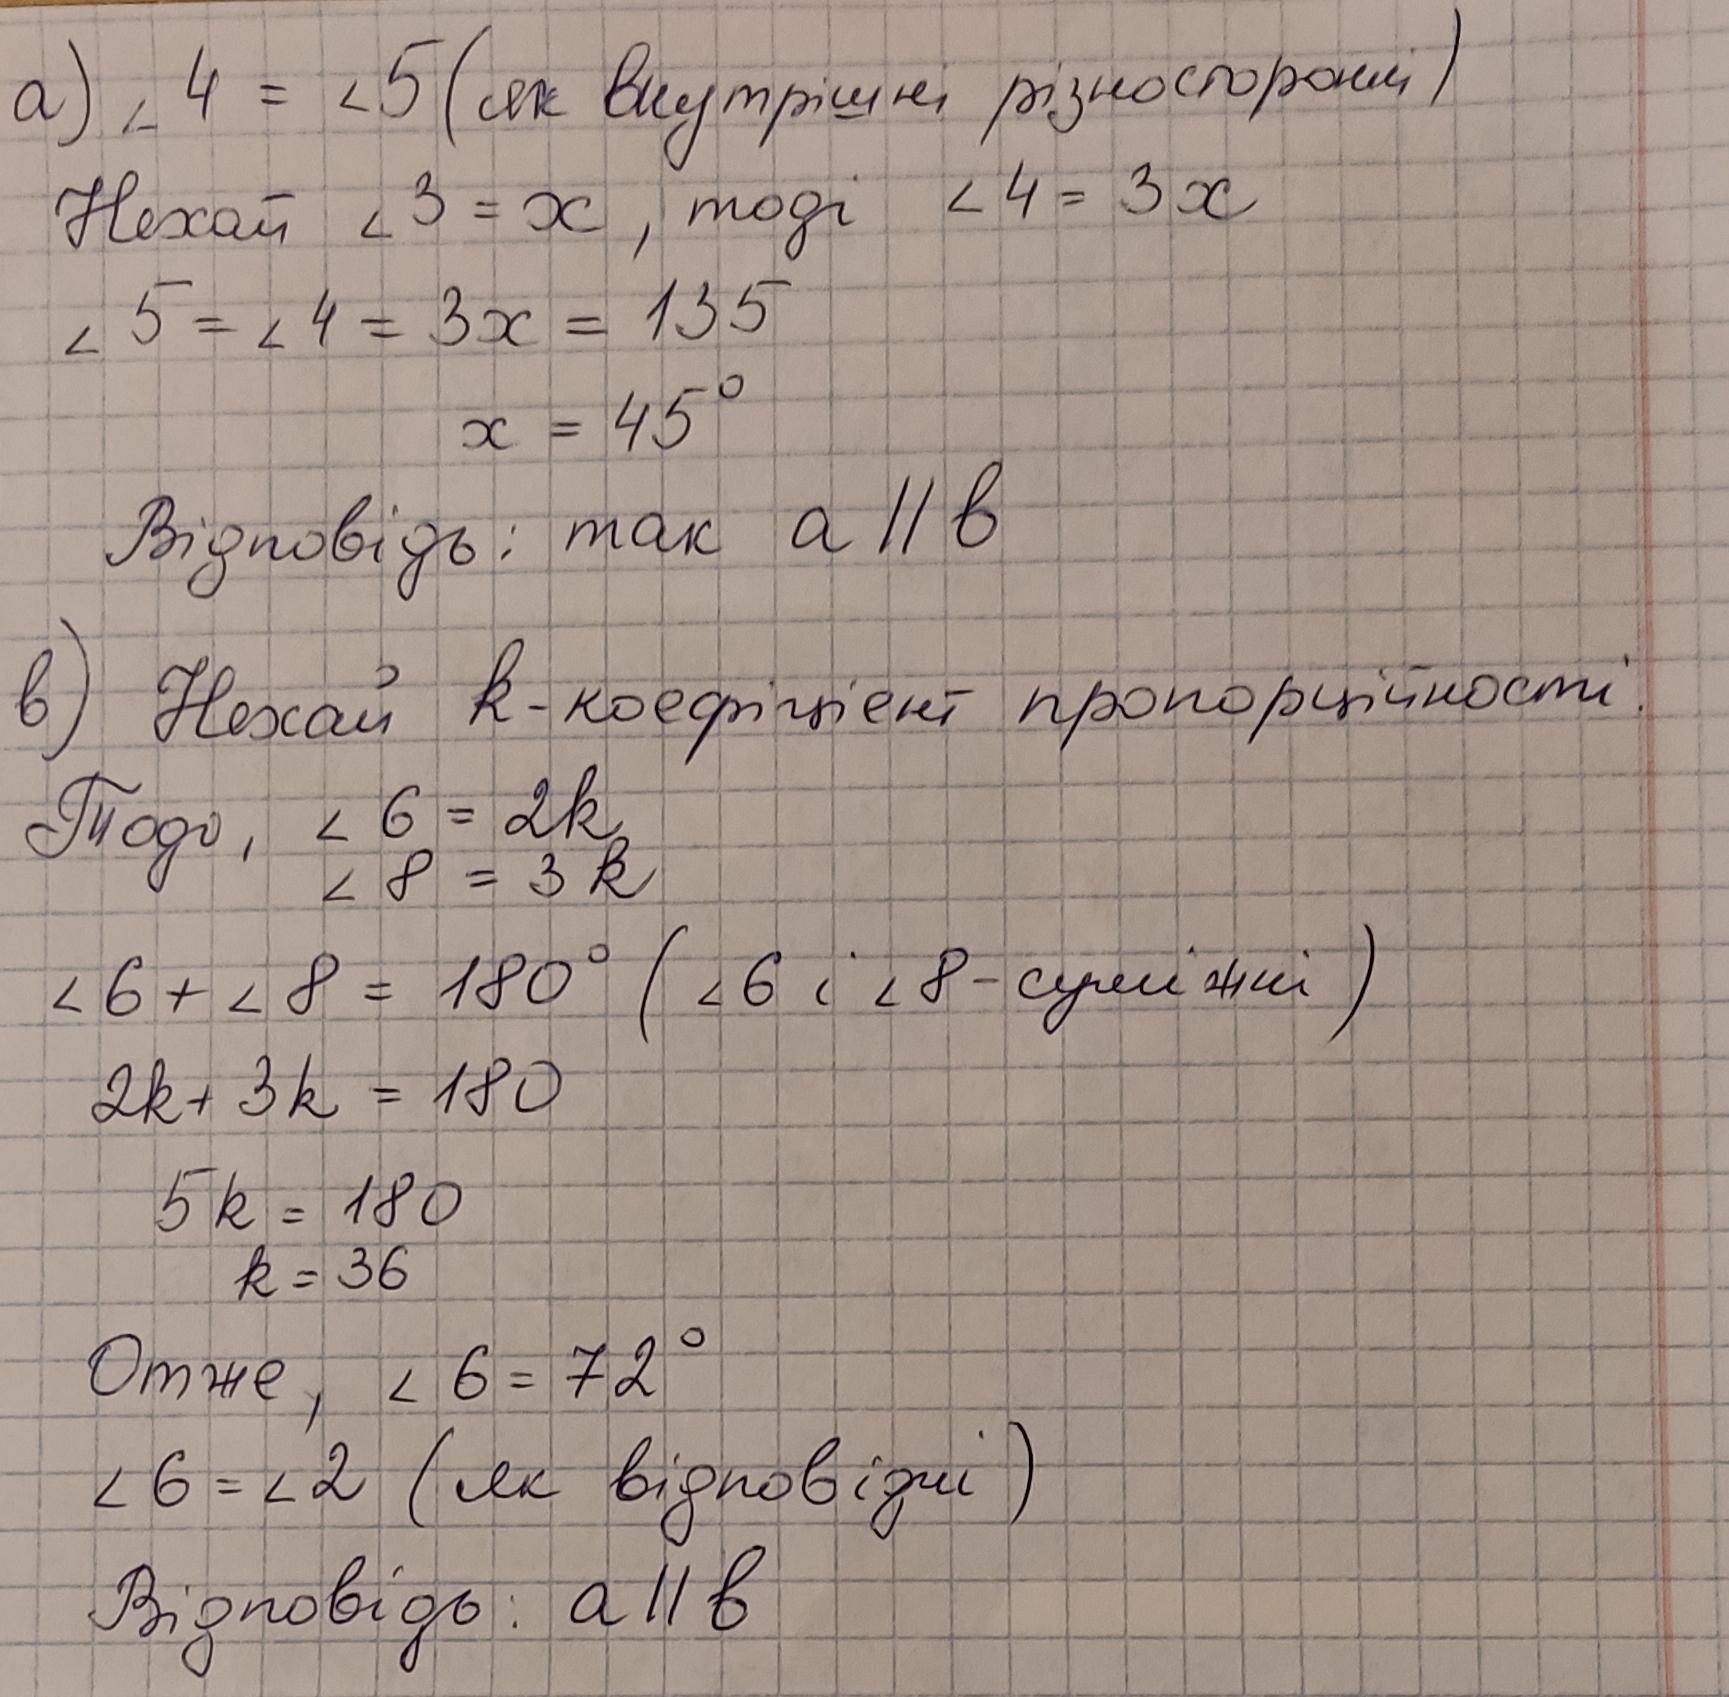 а) ∠4 = ∠5 (як внутрішні різносторонні)
Нехай ∠3 = x, тоді ∠4 = 3x
∠5 = ∠4 = 3x = 135
x = 45°
Відповідь: так a || b
в) Нехай k - коефіцієнт пропорційності.
Тоді, ∠6 = 2k
∠8 = 3k
∠6 + ∠8 = 180° (∠6 і ∠8 - суміжні)
2k + 3k = 180
5k = 180
k = 36
Отже, ∠6 = 72°
∠6 = ∠2 (як відповідні)
Відповідь: a || b